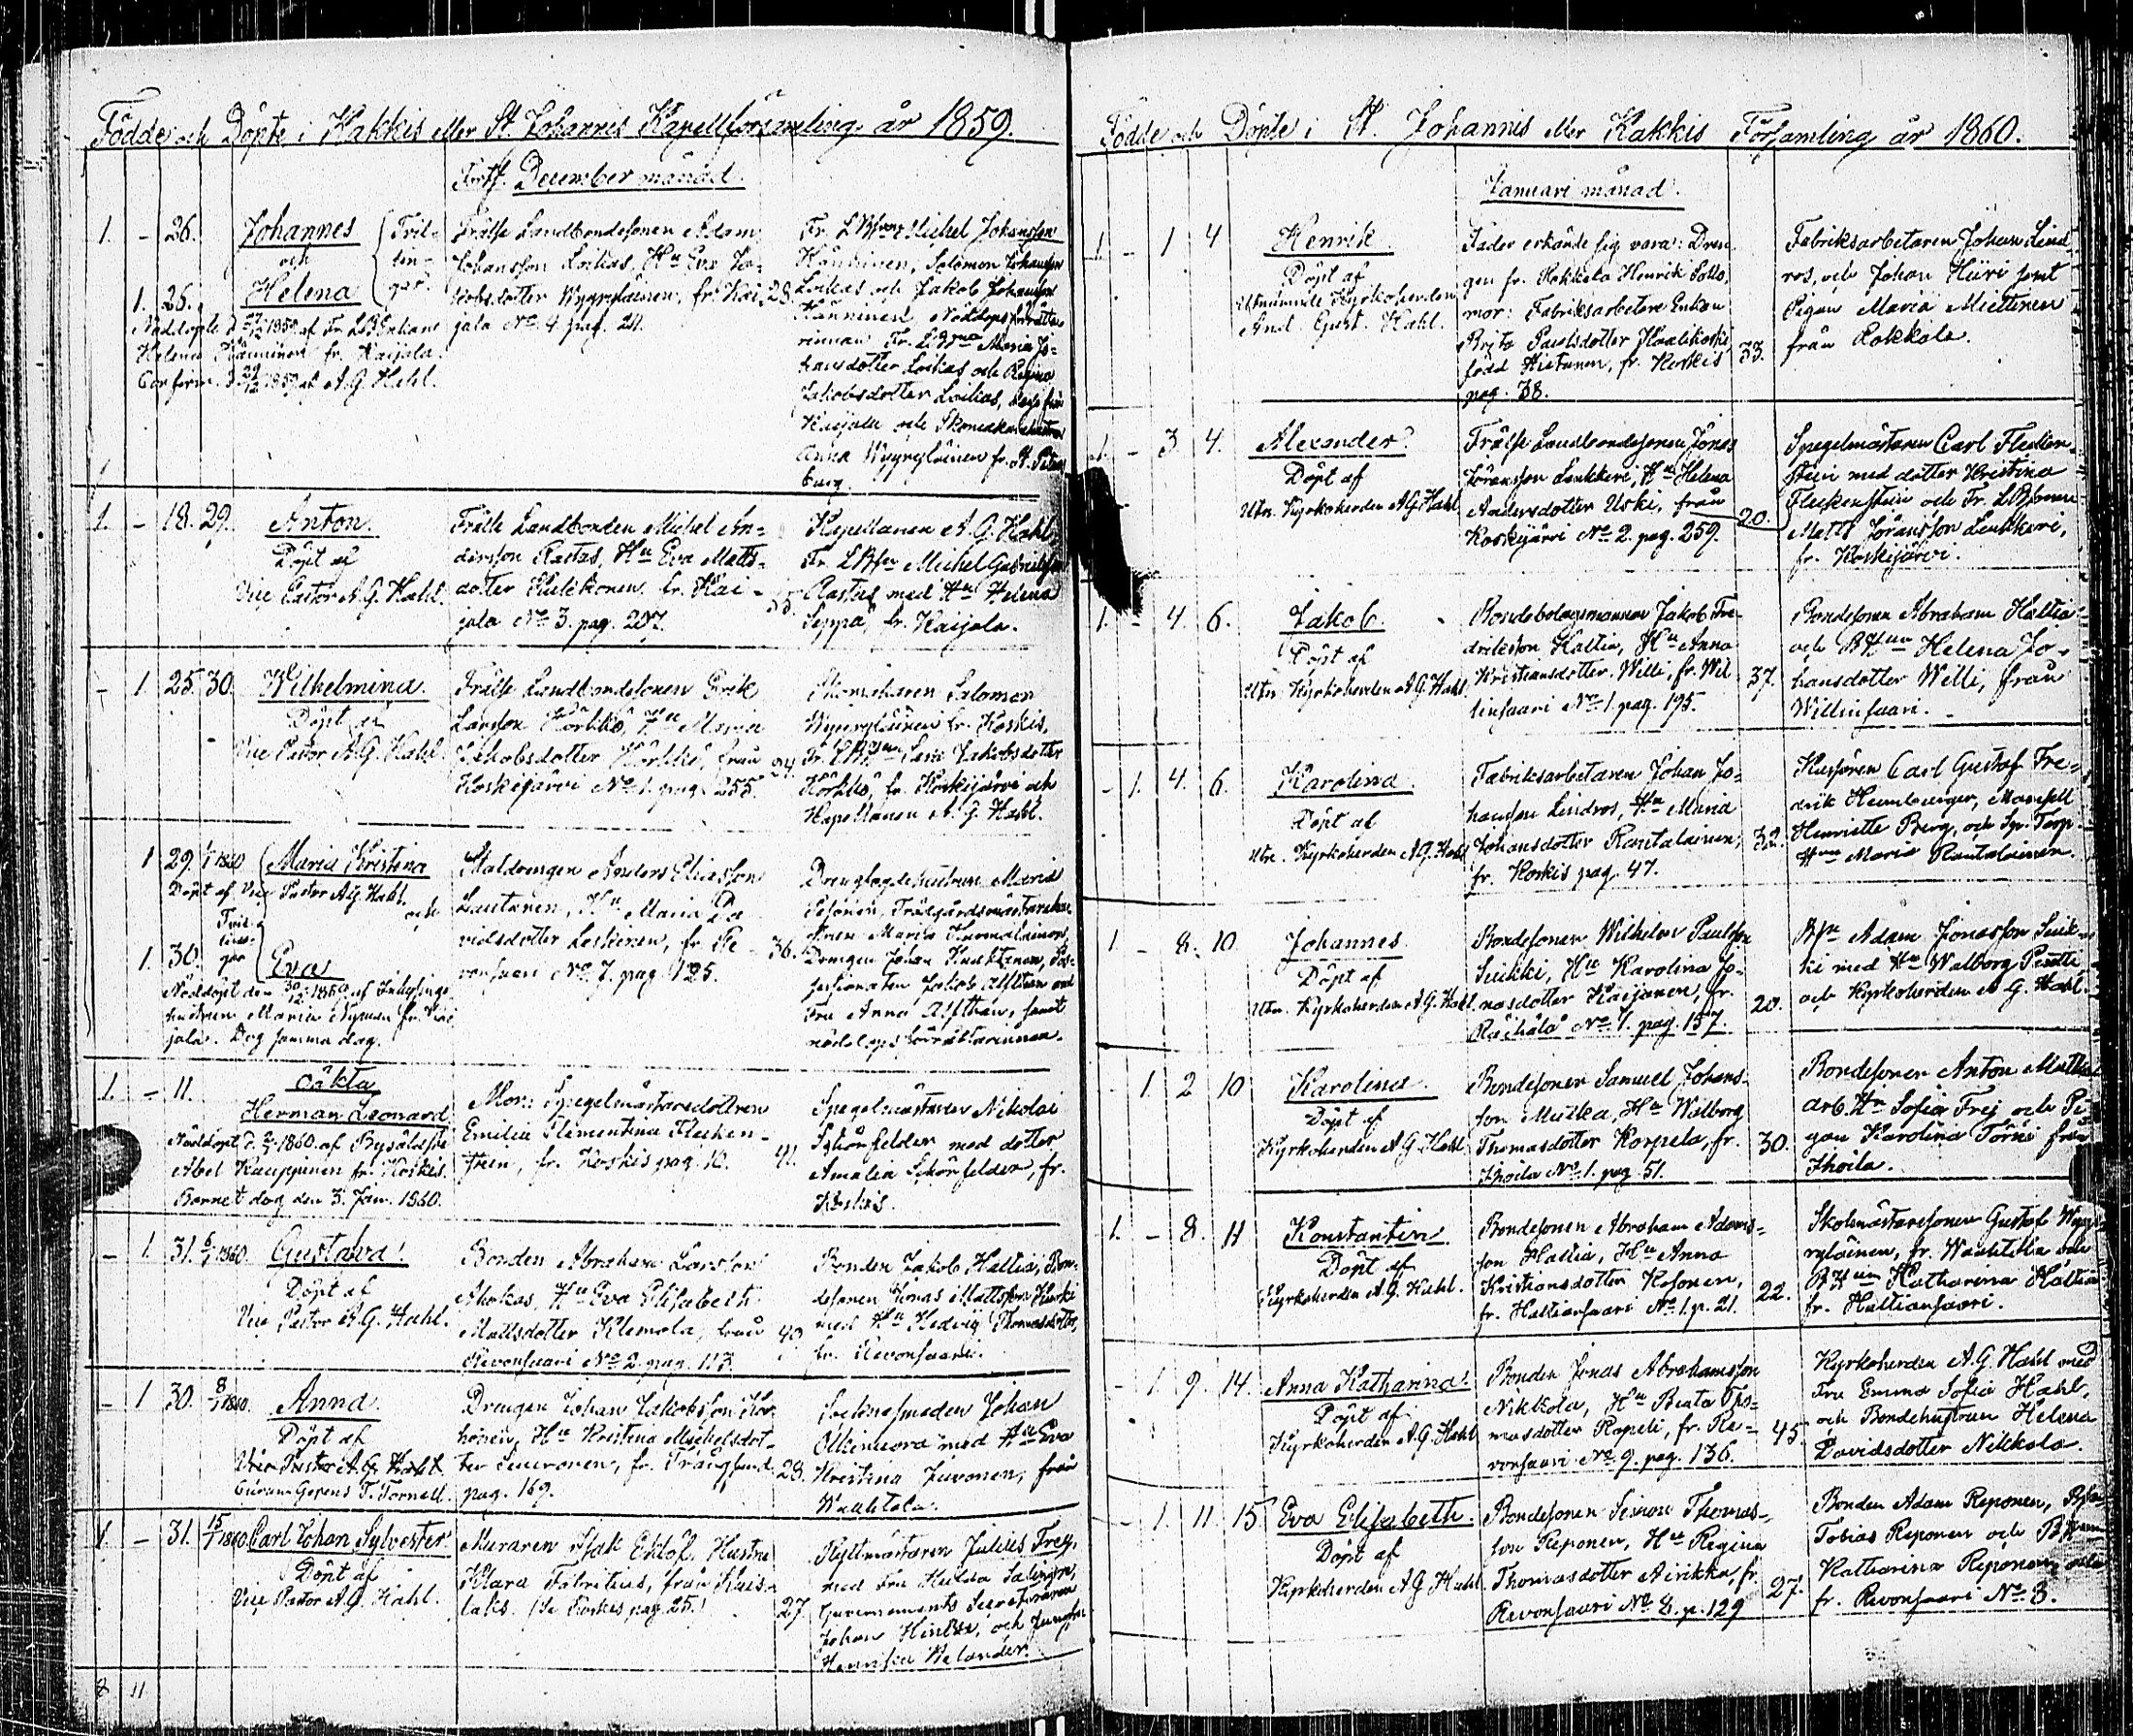 Födde och Döpte i Kakkis eller St. Johannes Kapellförsamling år 1859.
Forts. December månad.
1. - 26. Johannes
och
1. 26. Helena
Tvil-
lin-
gar.
Nöddöpte d. 27/12 1859 af Fr. LBEnkan
Helena Känninen fr. Kaijala.
Confirm. d. 29/12 1859 af A. G. Hahl.
Frälse Landbondesonen Adam
Johansson Loikas, Hu Eva Ja-
kobsdotter Wyyryläinen, fr. Kai-
jala No. 4. pag. 211.
28.
Fr. LBson Michel Johansson
Känninen, Salomon Johansson
Loikas och Jakob Johansson
Känninen, Nöddopsförrätta-
rinnan Fr. Maria Jo-
hansdotter Loikas och Regina
Jakobsdotter Loikas, från
Kaijala och
Anna Wyyryläinen fr. St. Peters-
burg.
1. - 18. 29. Anton.
Döpt af
Vice Pastor A. G. Hahl.
Frälse Landbonden Michel An-
dersson Rastas, Hu Eva Matts-
dotter Kulikonen, fr. Kai-
jala No. 3. pag. 207.
35.
Kapellanen A. G. Hahl,
Fr. LBsn Michel Gabrielsson
Rastas med Hu Helena
Seppä, fr. Kaijala.
- 1. 25. 30. Wilhelmina.
Döpt af
Vice Pastor A. G. Hahl.
Frälse Landbondesonen Erik
Larsson Körkkö, Hu Maria
Jakobsdotter Körkkö, från
Koskijärvi No. 1. pag. 255.
24.
Skomakaren Salomon
Wyyryläinen fr. Koskis,
Fr. Lisa Jakobsdotter
Körkkö, fr. Koskijärvi och
Kapellanen A. G. Hahl.
1 29. 1/1 1860 Maria Kristina
Döpt af Vice Pastor A. G. Hahl.
och
Tvil-
lin-
gar
1. 30. Eva
Nöddöpt den 30/12 1859 af Inhysings-
hustrun Maria Nyman fr. Kai-
jala. Dog samma dag.
Staldrengen Anders Eliasson
Lautanen, Hu Maria Da-
vidsdotter Leskinen, fr. Re-
vonsaari No. 7. pag. 125.
36.
Drenglagdehustrun Maria
Pesonen, Trädgårdsmästarehu-
strun Maria Kurmalainen,
Drengen Johan Kuakkanen, Pos-
sessionaten Jakob Alfthan med
Fru Anna Alfthan, samt
nöddopsförrättarinnan.
1. - 11. oäkta
Herman Leonard
Nöddöpt d. 2/1 1860 af Bysäldste
Abel Kauppinen fr. Koskis.
Barnet dog den 3. Jan. 1860.
Mor: Spegelmästaredottren
Emilia Clementina Flecken-
stein, fr. Koskis pag. 10.
41.
Spegelmästaren Nikolai
Schönfelder med dotter
Amalia Schönfelder, fr.
Koskis.
- 1. 31. 6/1 1860. Gustava!
Döpt af
Vice Pastor A. G. Hahl.
Bonden Abraham Larsson
Ahokas, Hu Eva Elisabeth
Mattsdotter Klemola, från
Revonsaari No. 2. pag. 113.
40
Bonden Jakob Hallia, Bon-
desonen Jonas Mattsson Kurki
med Hu Hedvig Thomasdotter,
fr. Revonsaari.
- 1 30. 8/1 1860. Anna.
Döpt af
Vice Pastor A. G. Hahl.
Curam Gerens T. Tornell.
Drengen Johan Jakobsson Kor-
honen, Hu Kristina Michelsdot-
ter Seuvonen, fr. Trångsund
pag. 169.
28.
Socknesmeden Johan
Olkinuora med Hu Eva
Kristina Juvonen, från
Waahtola.
1 - 31. 15/1 1860. Carl Johan Sylvester.
Döpt af
Vice Pastor A. G. Hahl.
Muraren Isak Eklöf, Hustru
Klara Fabritius, från Kuis-
laks. /Se Koskis pag. 25./
27
Ryttmästaren Julius Frey
med Fru Hulda
Guvernements Secreteraren
Johan och Jungfru
Henrika Welander.
8 11
Födde och Döpte i St. Johannis eller Kakkis Församling år 1860.
Januari månad.
1 1 4 Henrik.
Döpt af
Utnämnde Kyrkoherden
And. Gust. Hahl.
Fader erkände sig vara: Dren-
gen fr. Rokkala Henrik Sokko,
mor: Fabriksarbetare Enkan
Brita Paulsdotter Haakikoski,
född Hietanen, fr. Koskis
pag. 38.
33.
Fabriksarbetaren Johan Lind-
ros, och Johan Hüri samt
Pigan Maria Miettinen
från Rokkala.
1. - 3. 4. Alexander.
Döpt af
Utn. Kyrkoherden A. G. Hahl
Frälse Landbondesonen Jonas
Jöransson Leukkeri, Hu Helena
Andersdotter Uski, från
Koskijärvi No. 2. pag. 259.
20.
Spegelmästaren Carl Flecken-
stein med dotter Kristina
Fleckenstein och Fr. LBsonen
Matts Jöransson Leukkeri,
fr. Koskijärvi.
1. - 4. 6. Jakob.
Döpt af
Utn. Kyrkoherden A. G. Hahl.
Bondebolagsmannen Jakob Fre-
driksson Hallia, Hu Anna
Kristiansdotter Willi, fr. Wil-
linsaari No. 1. pag. 195.
37.
Bondesonen Abraham Hallia
och BHun Helena Jo-
hansdotter Willi, från
Willinsaari.
- 1. 4. 6. Karolina.
Döpt af
Utn. Kyrkoherden A. G. Hahl
Fabriksarbetaren Johan Jo-
hansson Lindros, Hu Maria
Johansdotter Rantalainen,
fr. Koskis pag. 47.
32.
Kusken Carl Gustaf Fre-
drik Heimberger, Mamsell
Henriette Berg, och Sp. Torp-
Hun Maria Rantalainen.
1. - 8. 10. Johannes.
Döpt af
Utn. Kyrkoherden A. G. Hahl.
Bondesonen Wilhelm Paulsson
Suikki, Hu Karolina Jo-
nasdotter Kaijanen, fr.
Räihälä No. 1. pag. 157.
20.
Bsn Adam Jonasson Suik-
ki med Hu Walborg Pirtti
och Kyrkoherden A. G. Hahl.
1. 2 10 Karolina.
Döpt af
Kyrkoherden A. G. Hahl
Bondesonen Samuel Johans-
son Muska, Hu Walborg
Thomasdotter Korpela, fr.
Ihoila No. 1. pag. 51.
30.
Bondesonen Anton
arb. Hu Sofia Frej och Pi-
gan Karolina Törni från
Ihoila.
1. - 8. 11 Konstantin.
Döpt af
Kyrkoherden A. G. Hahl.
Bondesonen Abraham Adams-
son Hallia, Hu Anna
Kristiansdotter Kosonen,
fr. Hallionsaari No. 1. p. 21.
22.
Skolmästaresonen Gustaf Wyy-
ryläinen, fr. Waahtola och
BHun Katharina Hallia
fr. Hallionsaari.
- 1. 9. 14. Anna Katharina!
Döpt af
Kyrkoherden A. G. Hahl
Bonden Jonas Abrahamsson
Nikkola, Hu Beata Tho-
masdotter Rapeli, fr. Re-
vonsaari No. 9. pag. 136.
45.
Kyrkoherden A. G. Hahl med
Fru Emma Sofia Hahl,
och Bondehustrun Helena
Davidsdotter Nikkola.
- 1. 11. 15. Eva Elisabeth.
Döpt af
Kyrkoherden A. G. Hahl
Bondesonen Simon Thomas-
son Reponen, Hu Regina
Thomasdotter Airikka, fr.
Revonsaari No. 8. p. 129
27.
Bonden Adam Reponen, Bsn
Tobias Reponen och BHun
Katharina Reponen, alla
fr. Revonsaari No. 3.